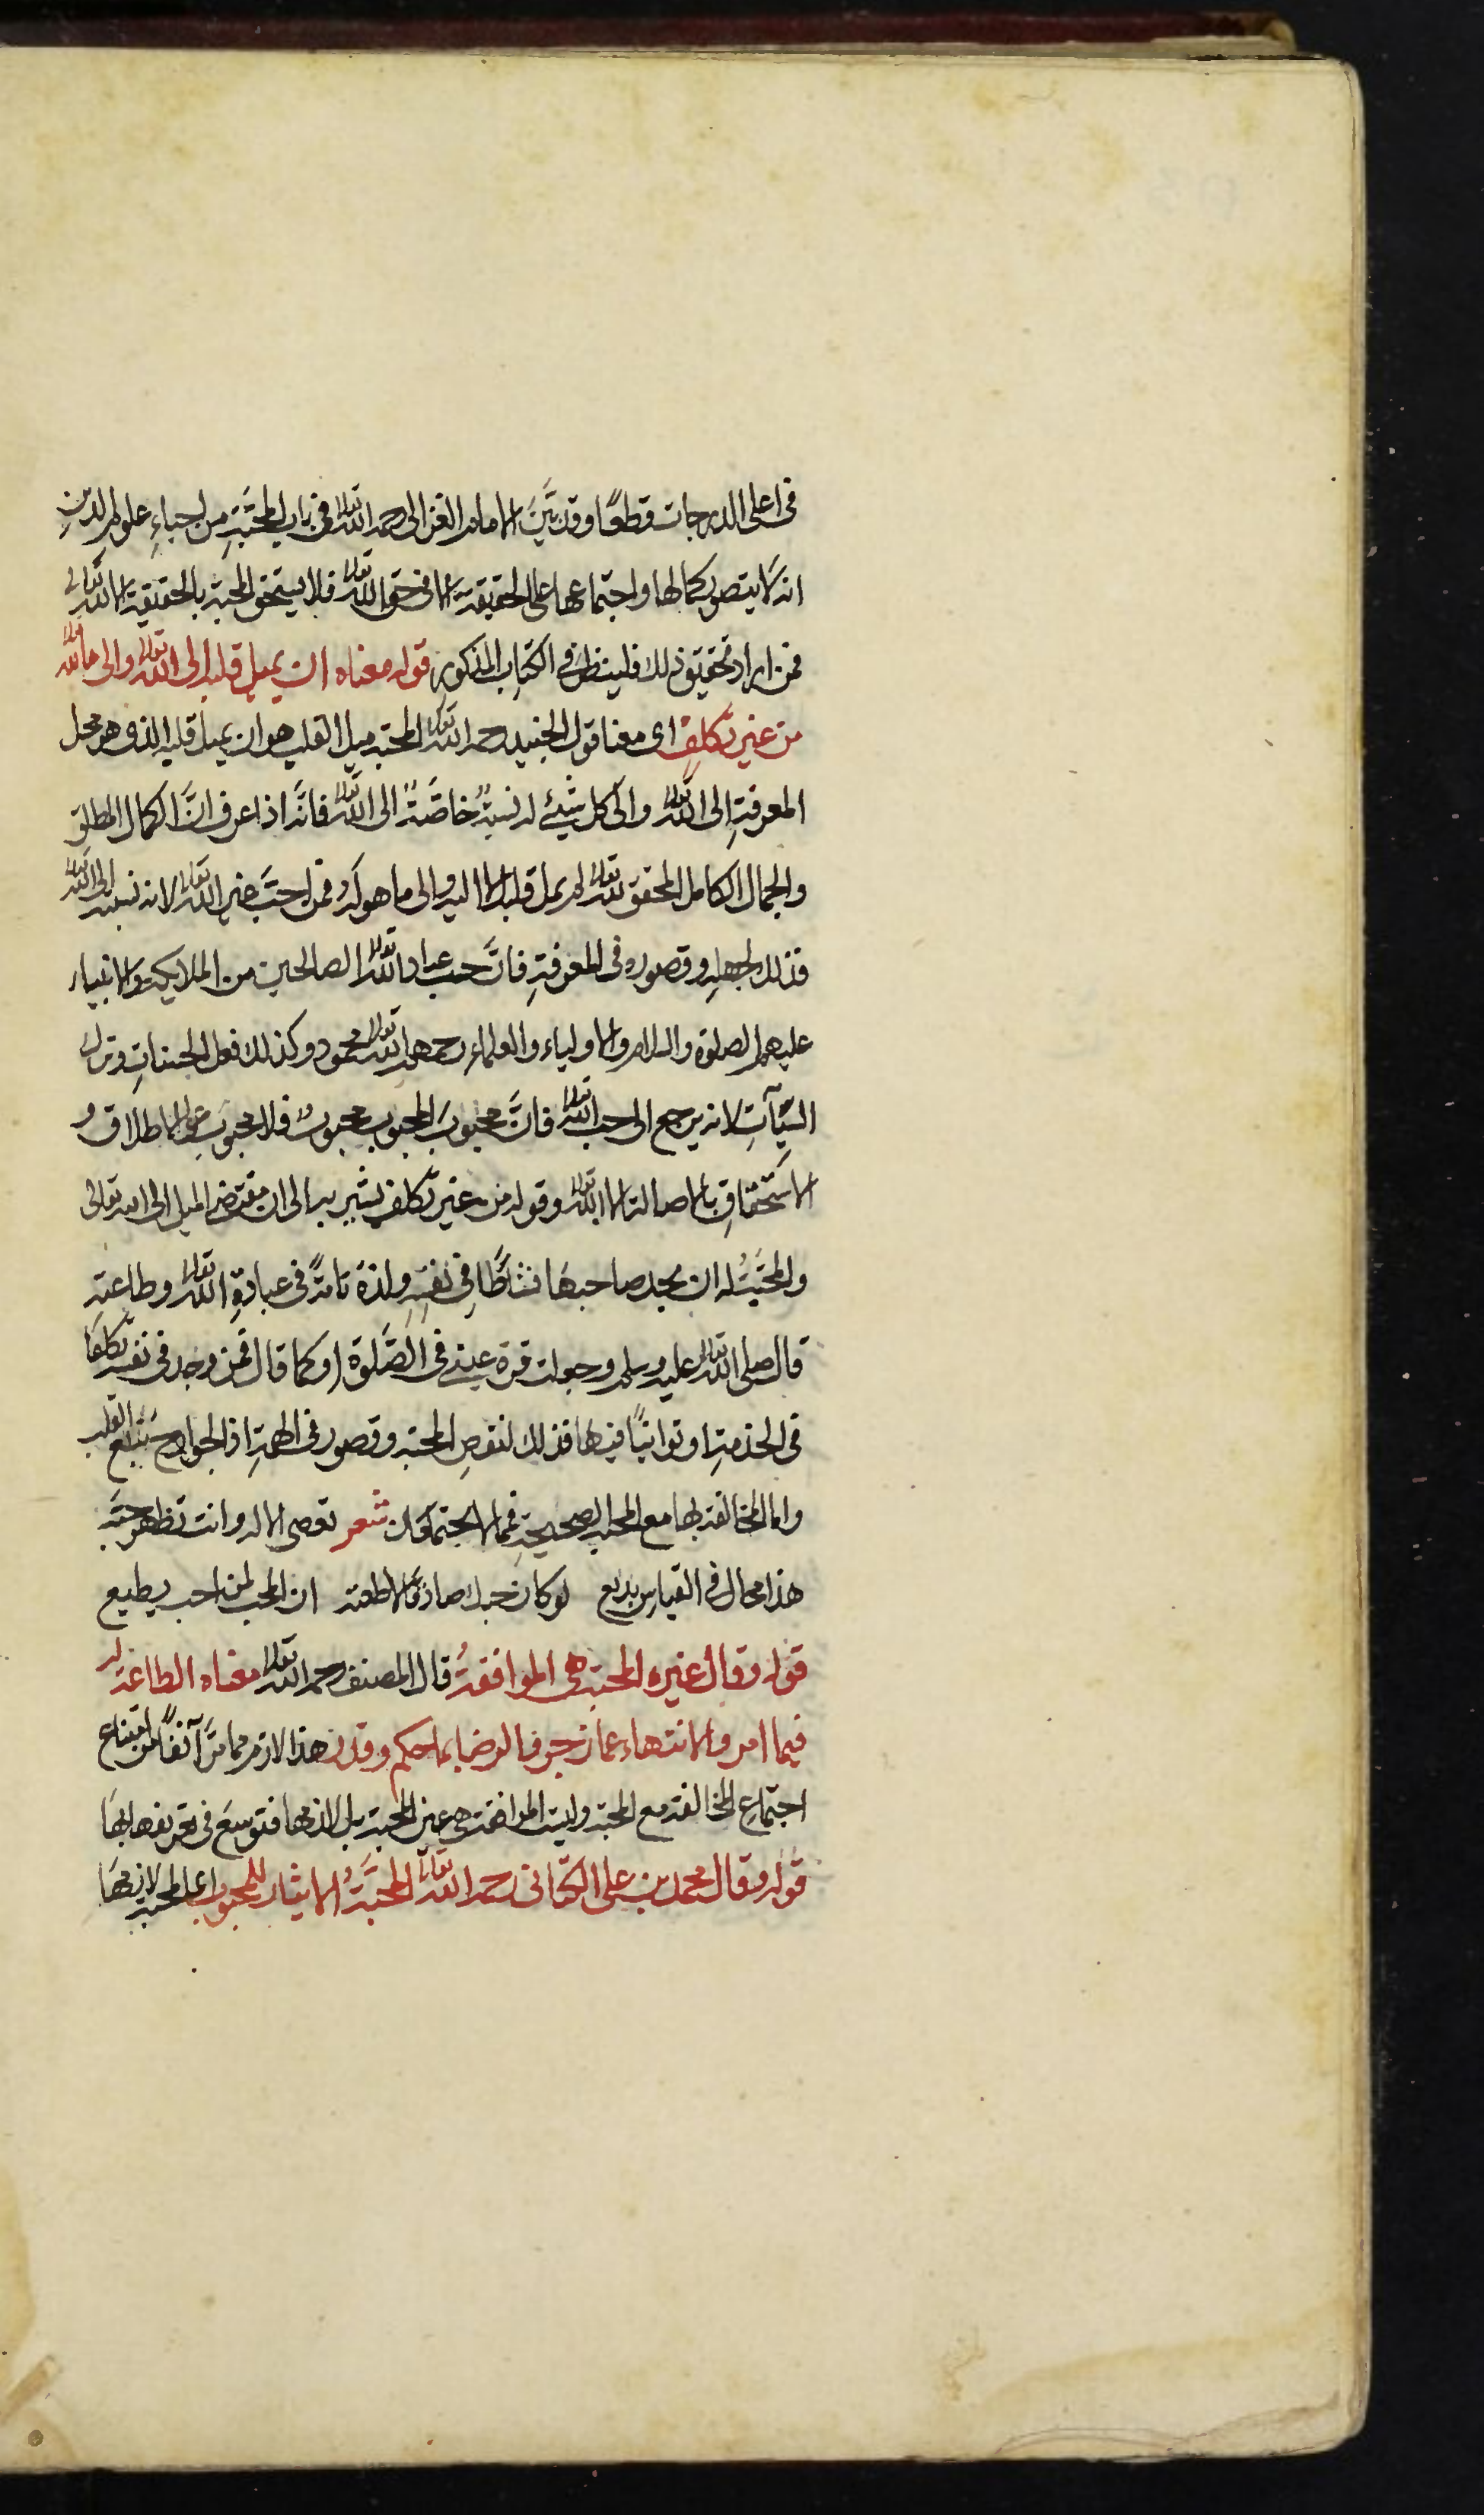 في اعلى الدرجات قطعًا وقد بيَّن الامام الغزالي رحمه الله تعالى في باب المحبّةِ من احياءِ علوم الدّينِ
انه لا يتصور كمالها واجتماعها على الحقيقة الا في حق الله تعالى فلا يستحق المحبة بالحقيقة الا الله تعالى
فمن اراد تحقيق ذلك فلينظر في الكتاب المذكور قوله معناه ان يميل قلبه الى الله تعالى والى ما لله تعالى
من غير تكلفٍ اى معنا قول الجنيد رحمه الله تعالى المحبة ميل القلب هو ان يميل قلبه الذى هو محل
المعرفةِ الى الله تعالى والى كل شيئ له نسبةٌ خاصّةٌ الى الله تعالى فانّه اذا عرف انّ الكمال المطلق
والجمال الكامل المحقق لله تعالى لم يمل قلبه الا اليه والى ما هو له فمن احبّ غير الله تعالى لا نه نسبة الى الله تعالى
فذلك لجهله وقصوره في المعرفةِ فانّ حب عباد الله تعالى الصالحين من الملايكة والانبياء
عليهم الصلوة والسلام والاولياء والعلماء رحمهم الله تعالى محمود وكذلك فعل الحسناتِ وترك
السّيّآتِ لانه يرجع الى حب الله تعالى فانّ محبوبَ المحبوب محبوبٌ فلا محبوب على الاطلاق و
الاستحقاقِ بالاصالة الا الله تعالى وقوله من غير تكلف يشير به الى ان مقتضى الميل الى الله تعالى
والمحبّة له ان يجد صاحبها نشاطًا في نفسِهِ ولذة تامةً في عبادةِ الله تعالى وطاعتهِ
قال صلى الله تعالى عليه وسلم وجعلت قرة عيني في الصّلوة او كما قال فمن وجد في نفسه تكلفًا
في الخدمةِ او توانيًا فيها فذلك لنقصِ المحبة وقصور في الهمةِ اذ الجوارح تتبع القلب
واما المخالفة بها مع المحبة الصحيحةِ فمما لا يجتمعان شعر تعصى الاله وانت تظهر حبّه
هذا محال في القياس بديع لو كان حبك صادقًا لاطعته ان المحب لمن احب يطيع
قوله وقال غيره المحبة هى الموافقةُ قال المصنف رحمه الله تعالى معناه الطاعة له
فيما امر والانتهاء عما زجر والرضا بما حكم وقدر هذا لازم مما مرّ آنفًا من امتناع
اجتماعِ المخالفة مع المحبة وليست الموافقة هى عين المحبة بل لازمها فتوسع في تعريفها بها
قوله وقال محمد بن على الكتّانى رحمه الله تعالى المحبّةُ الايثار للمحبوب اعلى المحبة لازمها